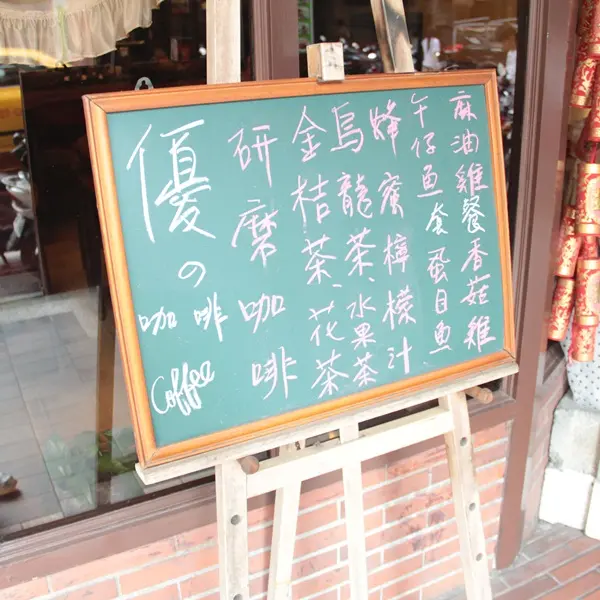 優の
咖啡
Coffee
研磨咖啡
金桔茶、花茶
烏龍茶、水果茶
蜂蜜檸檬汁
午仔魚套虱目魚
麻油雞餐香菇雞